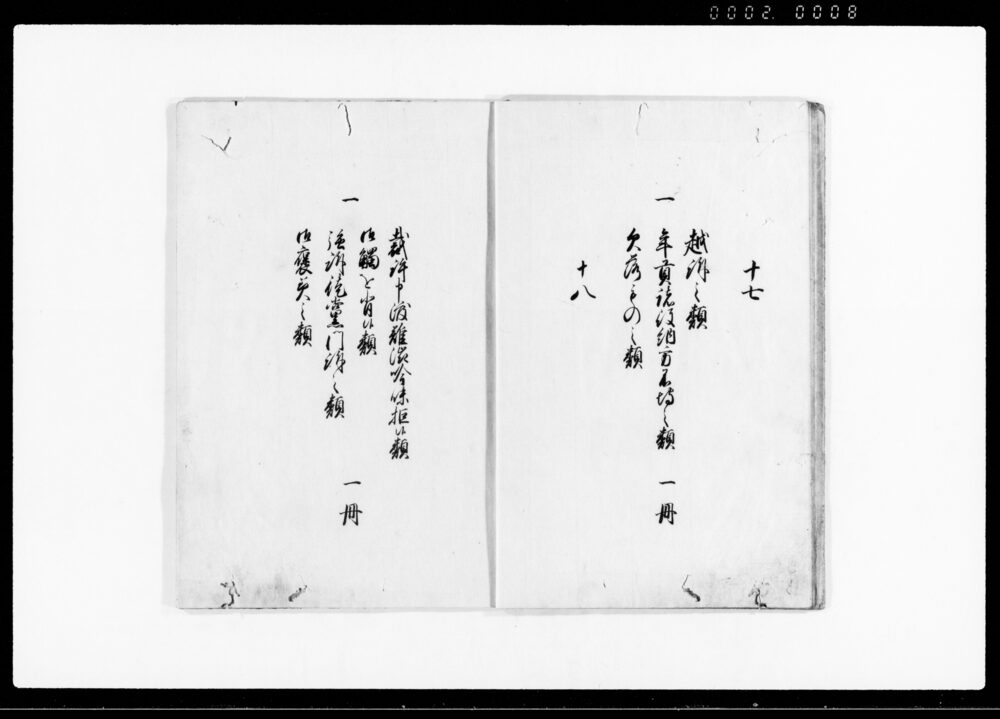 0002 0008
十七
越訴之類
一 年貢諸役納方不埒之類 一冊
欠落ものゝ類
十八
裁許申渡難渋吟味拒候類
一 御觸を背候類 一冊
強訴徒黨門訴之類
御褒美之類